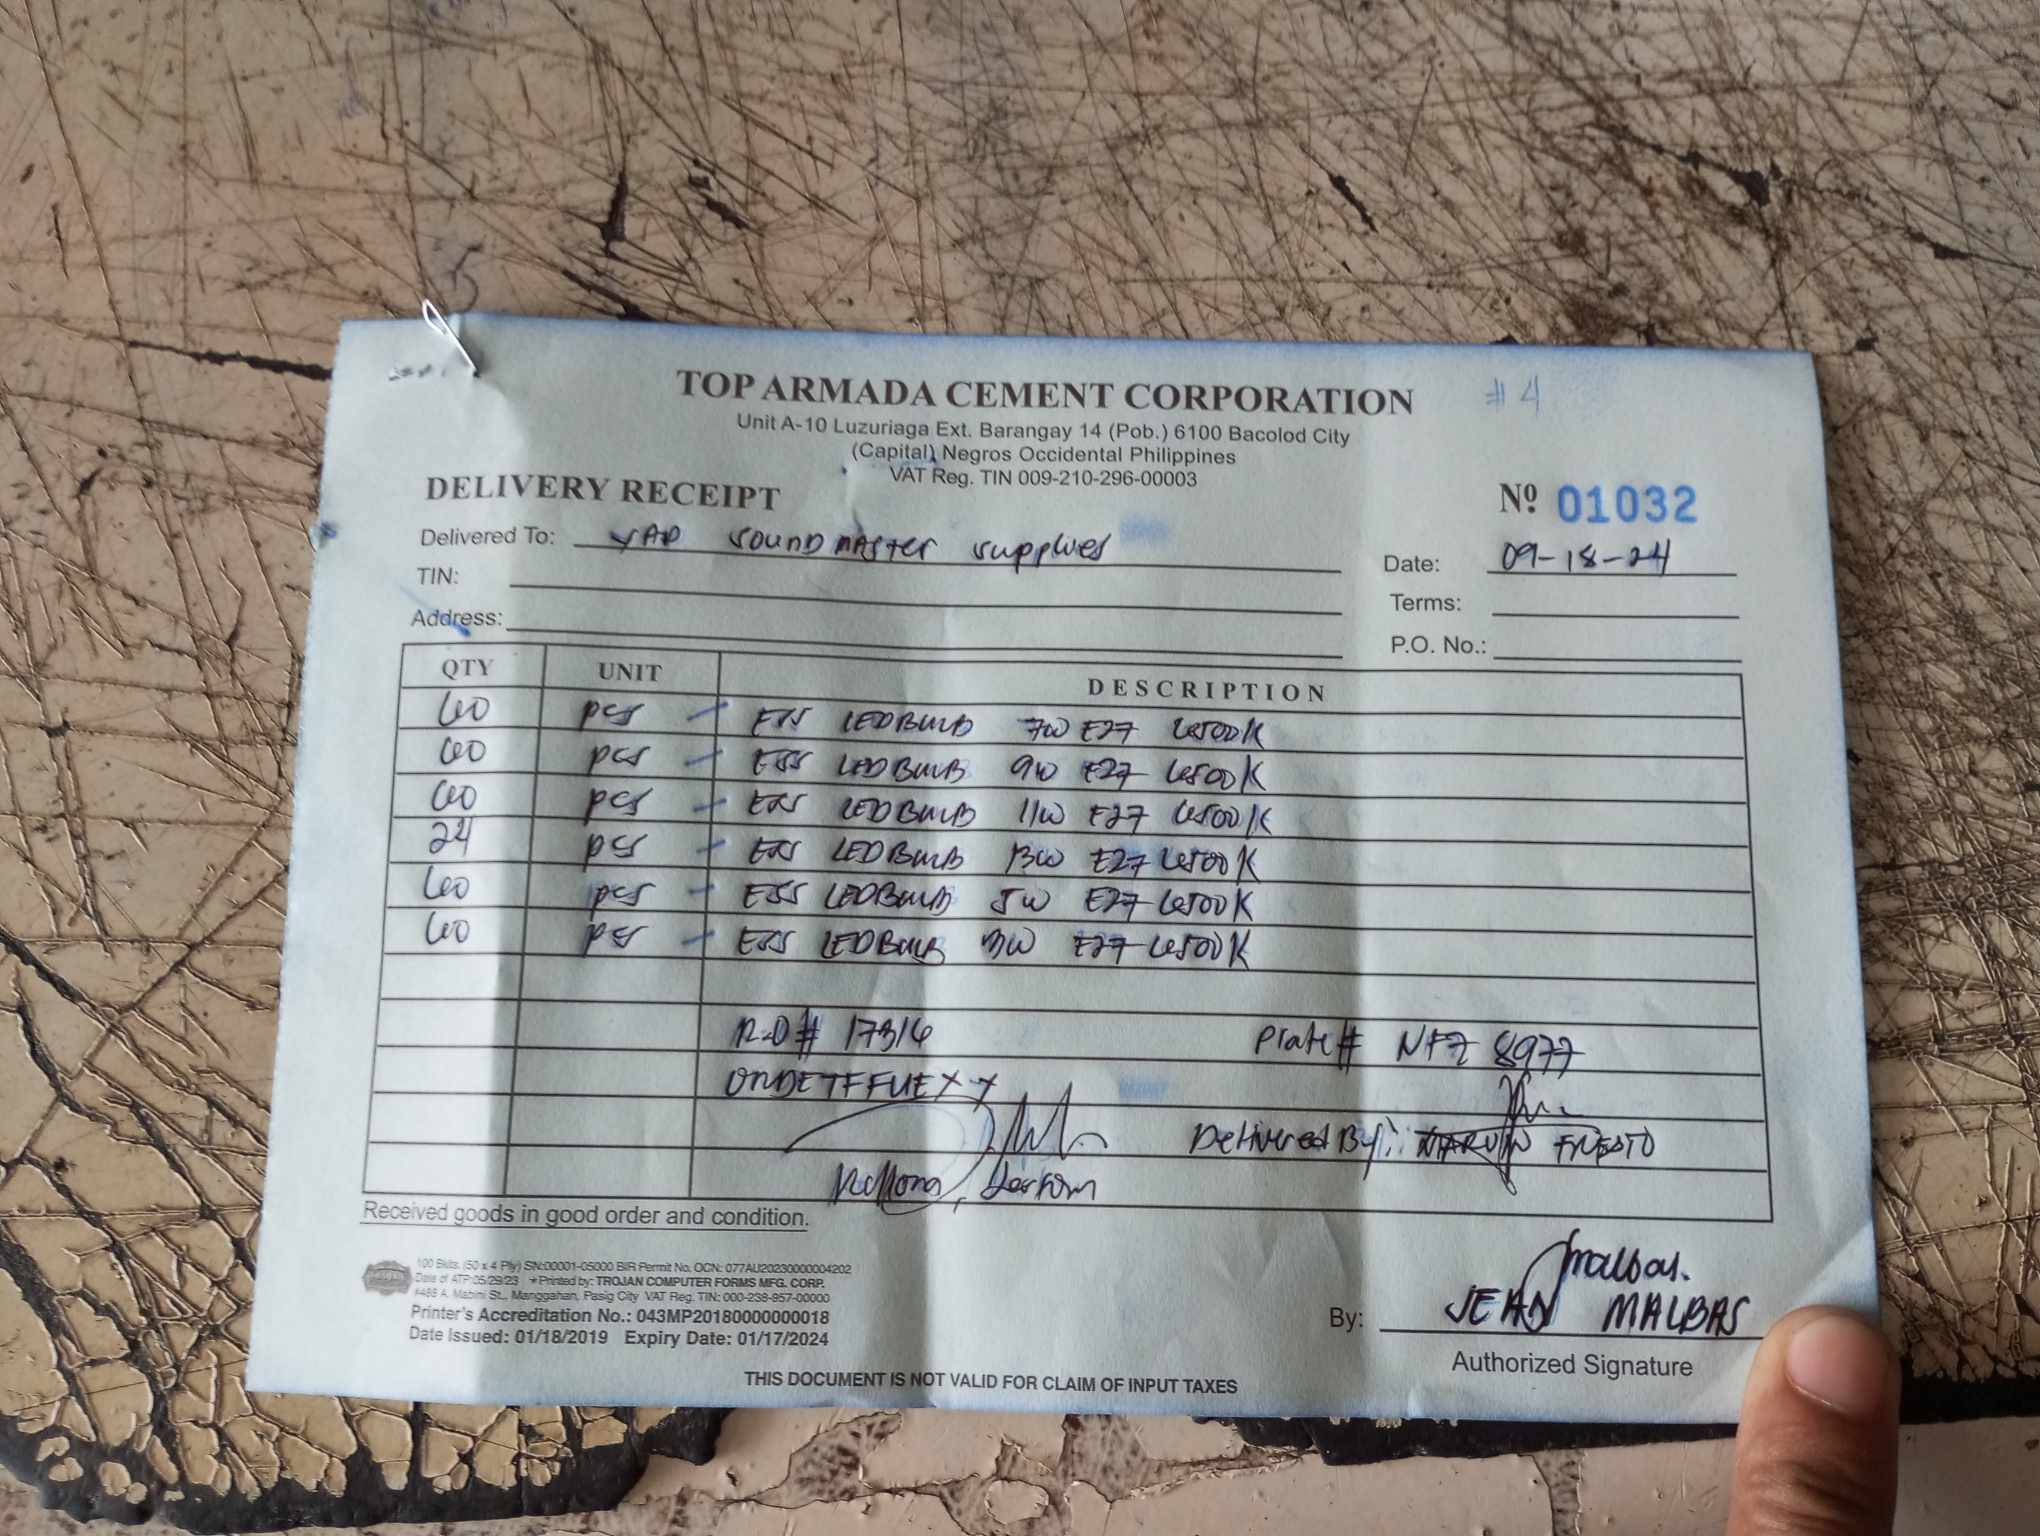 TOP ARMADA CEMENT CORPORATION # 4
Unit A-10 Luzuriaga Ext. Barangay 14 (Pob.) 6100 Bacolod City
(Capital) Negros Occidental Philippines
VAT Reg. TIN 009-210-296-00003
DELIVERY RECEIPT Nº 01032
Delivered To: YAP SOUNDMASTER SUPPLIES
Date: 09-18-24
TIN:
Terms:
Address:
P.O. No.:
QTY UNIT DESCRIPTION
60 pcs - ESS LEDBULB 7W E27 6500K
60 pcs - ESS LEDBULB 9W E27 6500K
60 pcs - ESS LEDBULB 11W E27 6500K
24 pcs - ESS LEDBULB 13W E27 6500K
60 pcs - ESS LEDBULB 5W E27 6500K
60 pcs - ESS LEDBULB 3W E27 6500K
R.O # 17316 Plate # NFZ 8977
Delivered By: MARVIN
Received goods in good order and condition.
100 Bklts. (50 x 4 Ply) SN:00001-05000 BIR Permit No. OCN: 077AU20230000004202
Date of ATP:05/29/23 ★Printed by: TROJAN COMPUTER FORMS MFG. CORP.
#488 A. Mabini St., Manggahan, Pasig City VAT Reg. TIN: 000-238-957-00000
Printer's Accreditation No.: 043MP20180000000018
Date Issued: 01/18/2019 Expiry Date: 01/17/2024
Malbas.
By: JEAN MALBAS
Authorized Signature
THIS DOCUMENT IS NOT VALID FOR CLAIM OF INPUT TAXES